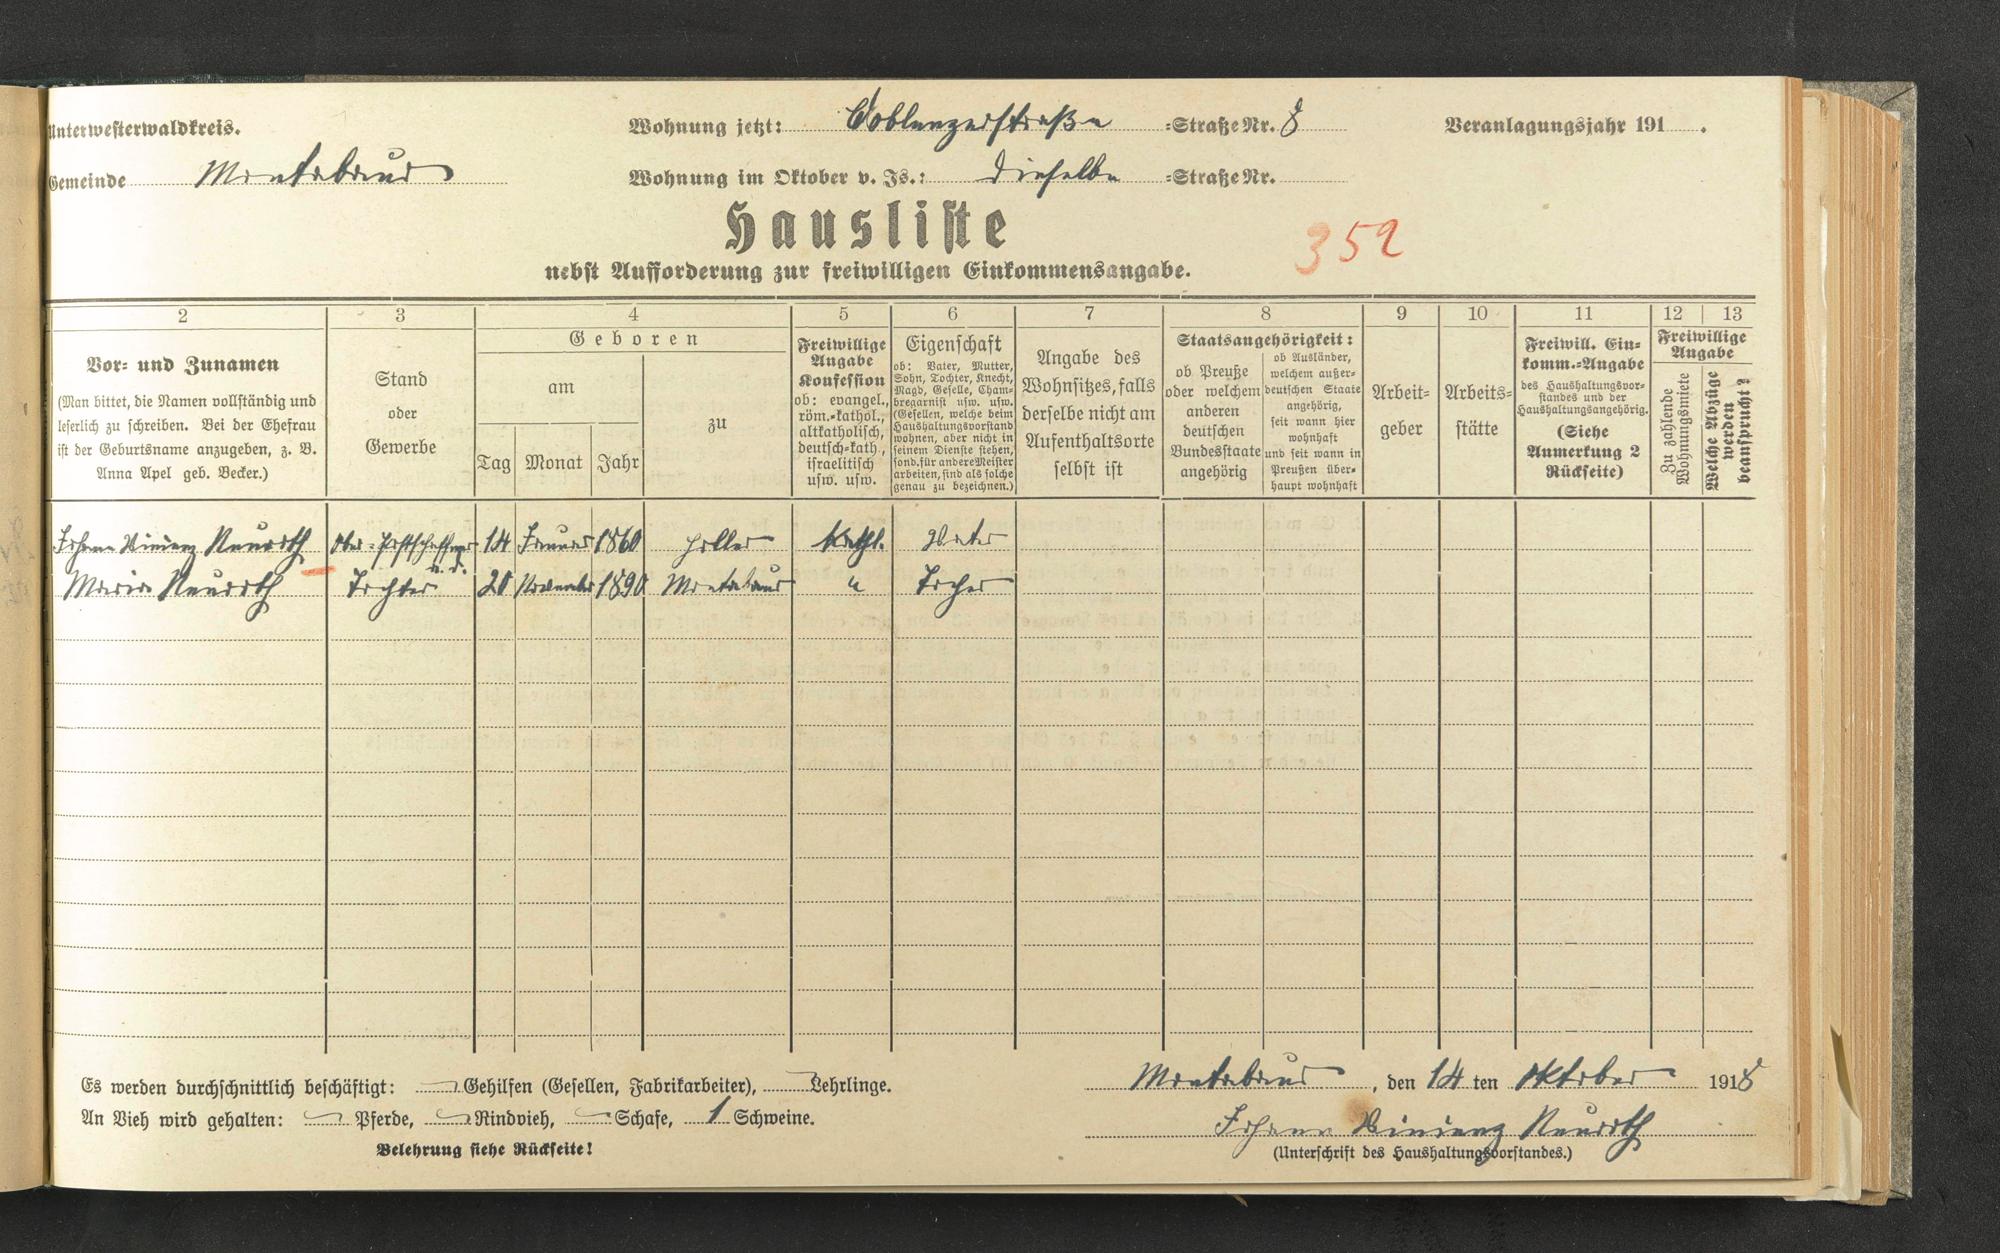 Unterwesterwaldkreis.
Wohnung jetzt: Coblenzerstraße =Straße Nr. 8
Veranlagungsjahr 191 .
Gemeinde Montabaur
Wohnung im Oktober v. Js.: dieselbe =Straße Nr.
Hausliste
352
nebst Aufforderung zur freiwilligen Einkommensangabe.
2 3 4 5 6 7 8 9 10 11 12 13
Vor- und Zunamen
(Man bittet, die Namen vollständig und
leserlich zu schreiben. Bei der Ehefrau
ist der Geburtsname anzugeben, z. B.
Anna Apel geb. Becker.)
Stand
oder
Gewerbe
Geboren
am
Tag Monat Jahr
zu
Freiwillige
Angabe
Konfession
ob: evangel.,
röm.-kathol.,
altkatholisch,
deutsch-kath.,
israelitisch
usw. usw.
Eigenschaft
ob: Vater, Mutter,
Sohn, Tochter, Knecht,
Magd, Geselle, Cham-
bregarnist usw. usw.
(Gesellen, welche beim
Haushaltungsvorstand
wohnen, aber nicht in
seinem Dienste stehen,
sond. für andere Meister
arbeiten, sind als solche
genau zu bezeichnen.)
Angabe des
Wohnsitzes, falls
derselbe nicht am
Aufenthaltsorte
selbst ist
Staatsangehörigkeit:
ob Preuße
oder welchem
anderen
deutschen
Bundesstaate
angehörig
ob Ausländer,
welchem außer-
deutschen Staate
angehörig,
seit wann hier
wohnhaft
und seit wann in
Preußen über-
haupt wohnhaft
Arbeit-
geber
Arbeits-
stätte
Freiwill. Ein-
komm.-Angabe
des Haushaltungsvor-
standes und der
Haushaltungsangehörig.
(Siehe
Anmerkung 2
Rückseite)
Freiwillige
Angabe
Zu zahlende
Wohnungsmiete
Welche Abzüge
werden
beansprucht?
Johann Vinzenz Neuroth Ober-Postschaffner a. D. 14 Januar 1860 Holler Kathl. Vater
Maria Neuroth Tochter 20 November 1890 Montabaur " Tochter
Es werden durchschnittlich beschäftigt: — Gehilfen (Gesellen, Fabrikarbeiter), — Lehrlinge.
An Vieh wird gehalten: — Pferde, — Rindvieh, — Schafe, 1 Schweine.
Belehrung siehe Rückseite!
Montabaur, den 14 ten Oktober 1918
Johann Vinzenz Neuroth
(Unterschrift des Haushaltungsvorstandes.)